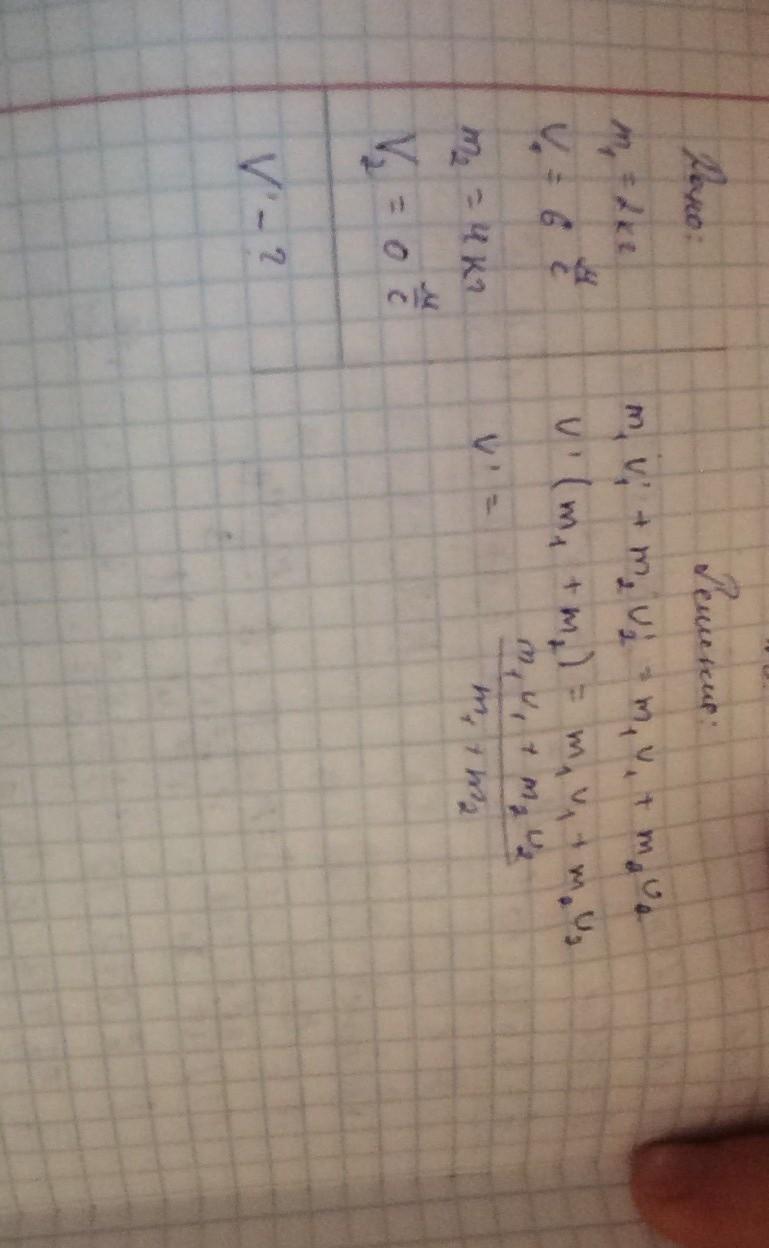 Дано:
m₁ = 2кг
V₁ = 6 м/с
m₂ = 4 кг
V₂ = 0 м/с
V' - ?
Решение:
m₁ V₁' + m₂ V₂' = m₁ V₁ + m₂ V₂
V' (m₁ + m₂) = m₁ V₁ + m₂ V₂
V' = (m₁ V₁ + m₂ V₂) / (m₁ + m₂)